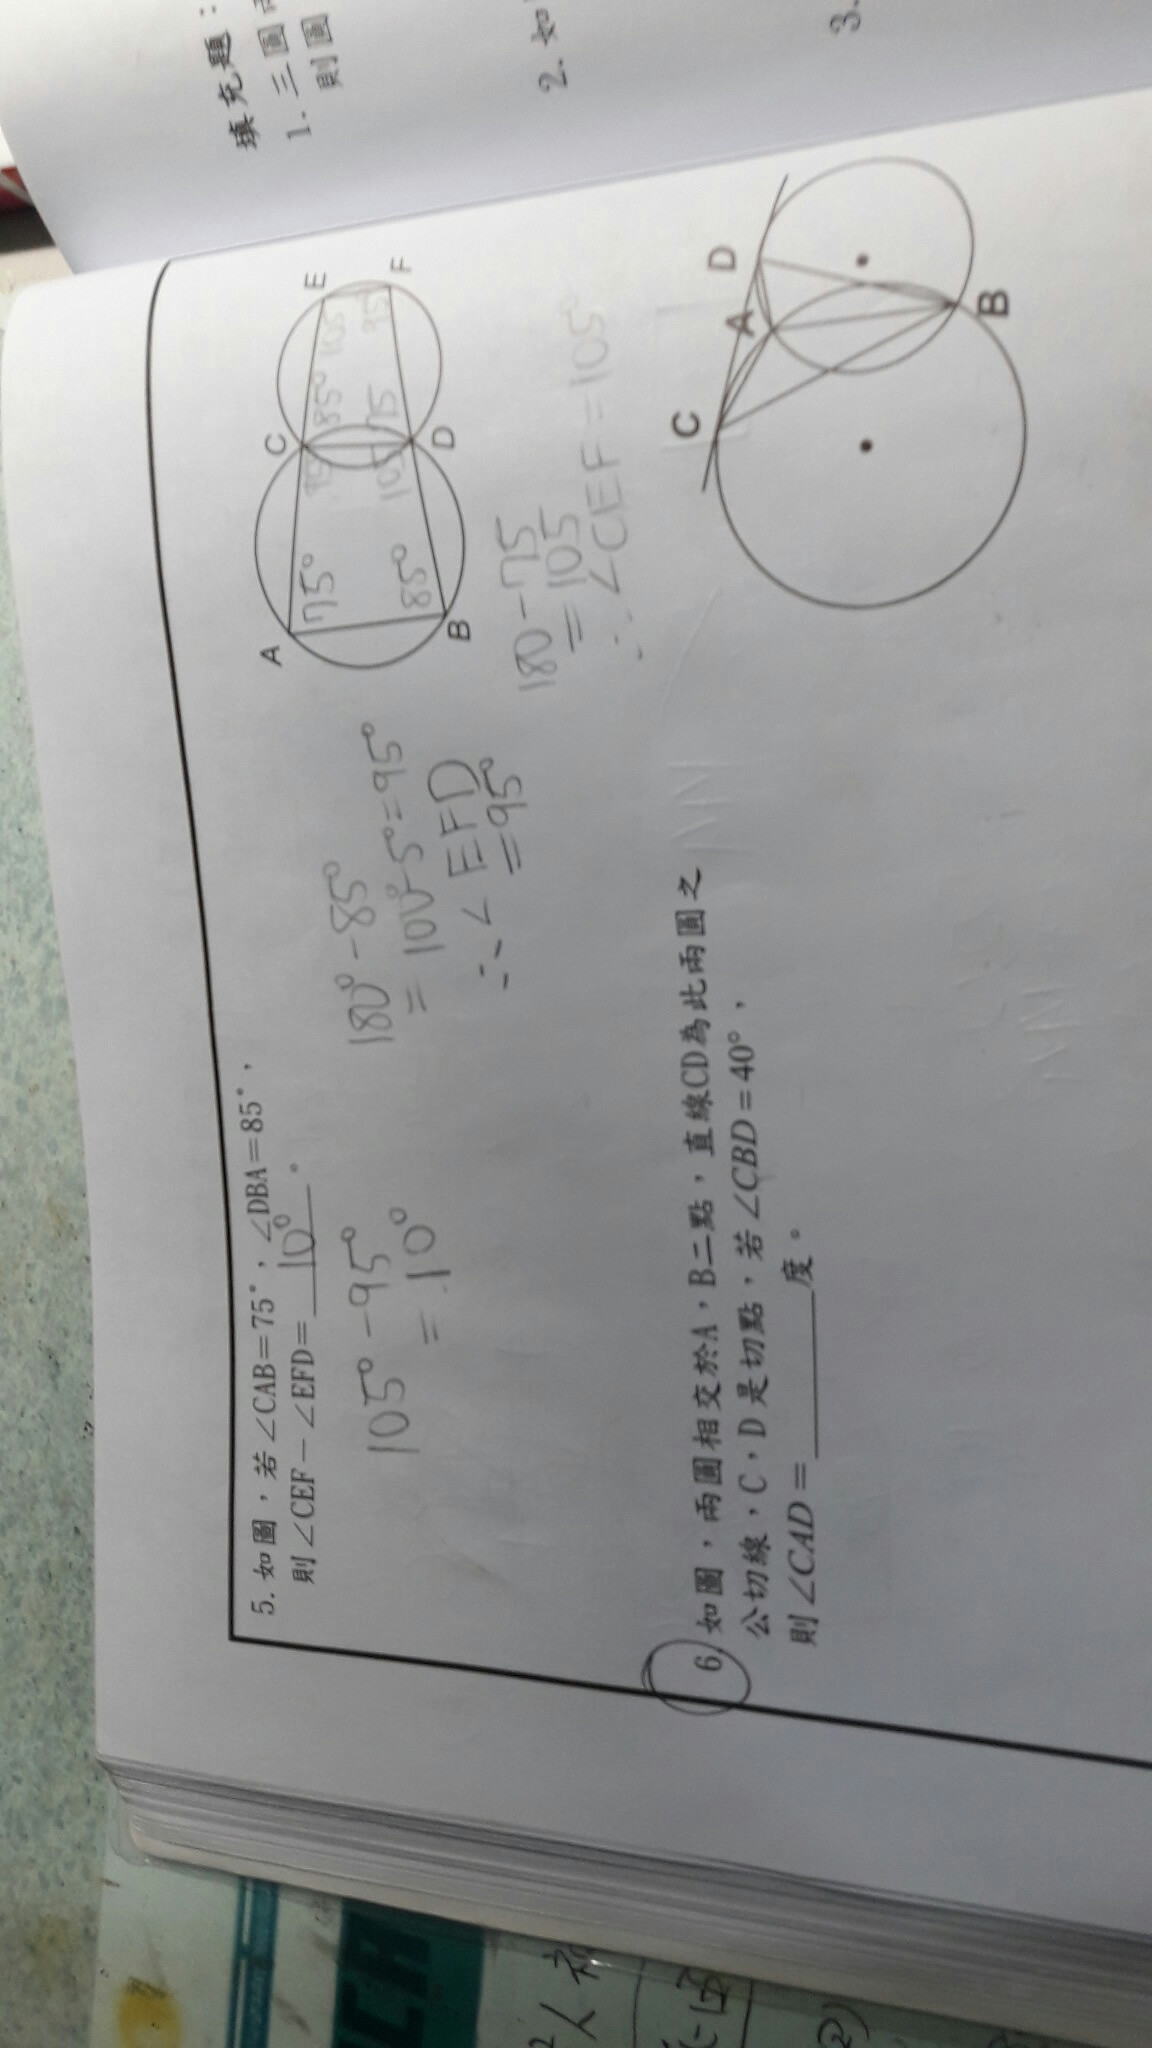 填充題：
1. 三圓
則圓
2. 如
3.
5. 如圖，若∠CAB=75°，∠DBA=85°，
則∠CEF－∠EFD=10°。
105°-95°
=10°
180°-85°
=100°-5°=95°
∴∠EFD
=95°
180-75
=105
∴∠CEF=105°
A
B
C
D
E
F
75°
85°
95
105
85°
75
105
95
6. 如圖，兩圓相交於A，B二點，直線CD為此兩圓之
公切線，C，D是切點，若∠CBD=40°，
則∠CAD=______度。
C
A
D
B